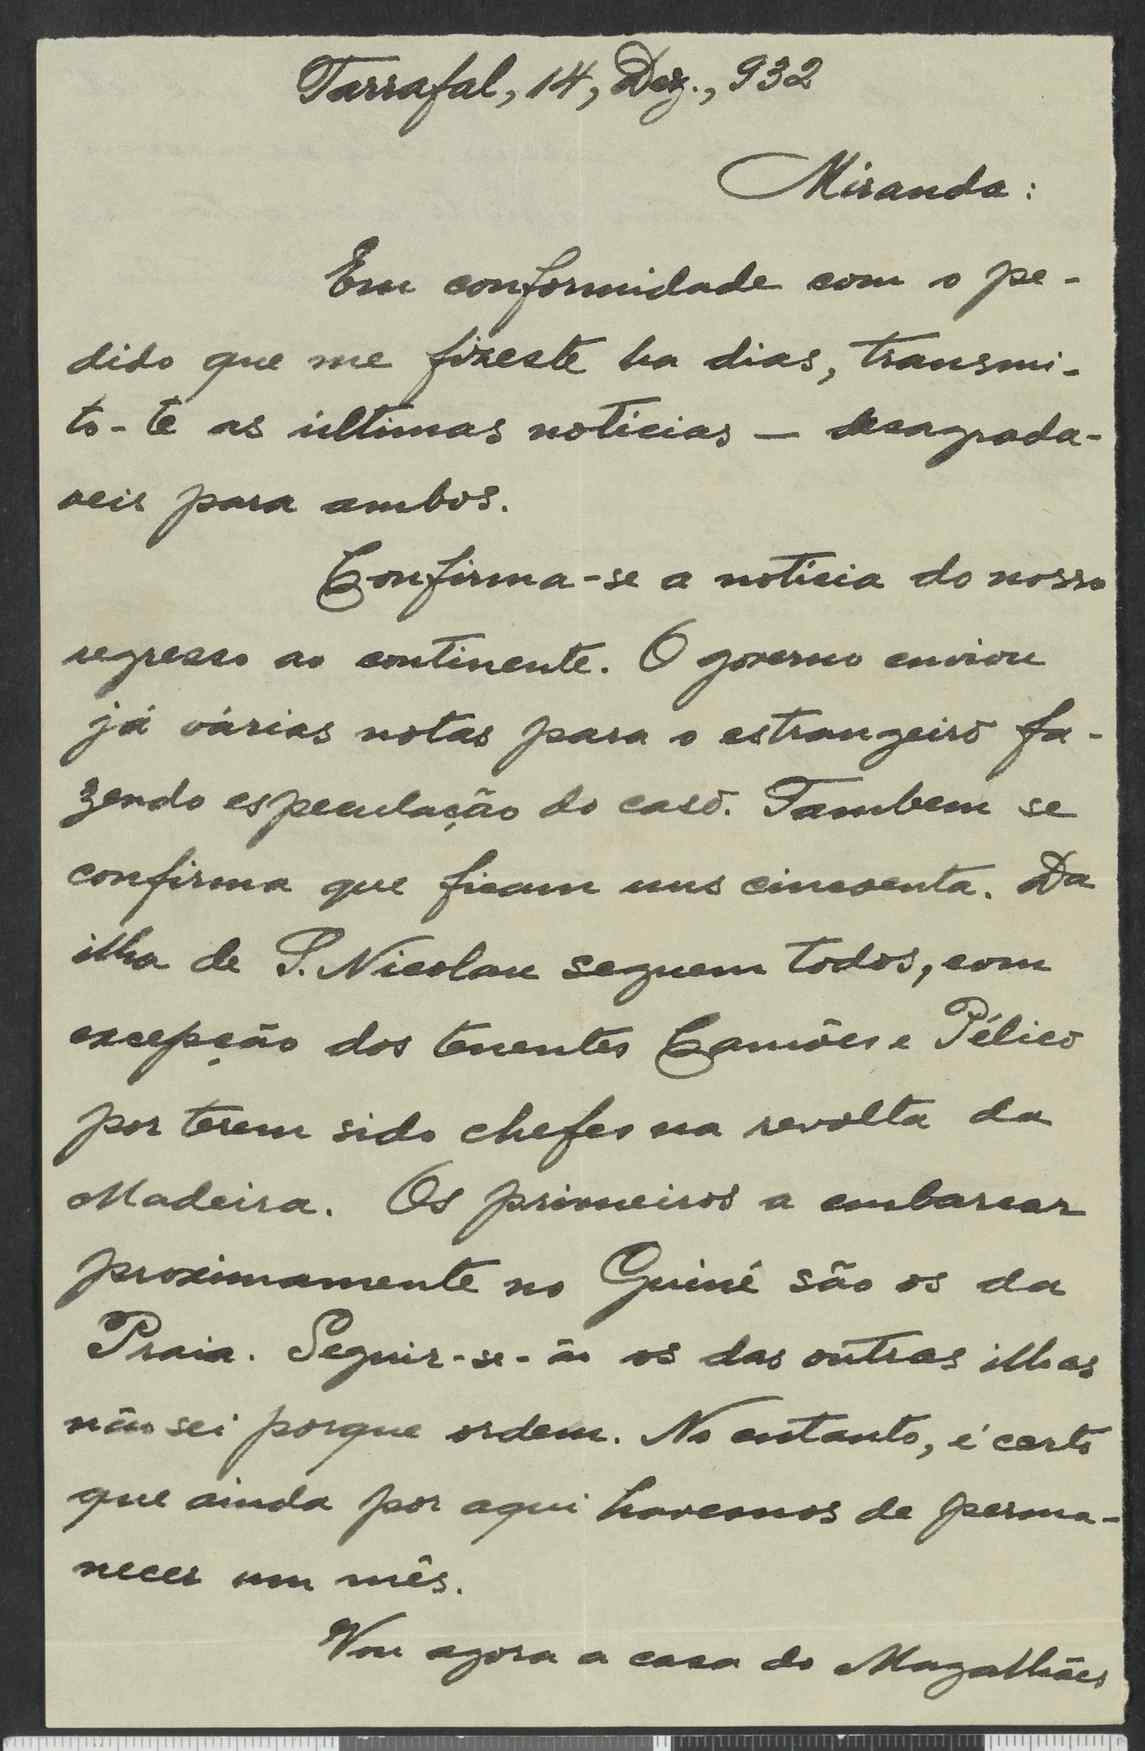 Tarrafal, 14, Dez., 932
Miranda:
Em conformidade com o pe-
dido que me fizeste ha dias, transmi-
to-te as últimas notícias — desagrada-
veis para ambos.
Confirma-se a notícia do nosso
regresso ao continente. O governo enviou
já várias notas para o estrangeiro fa-
zendo especulação do caso. Tambem se
confirma que ficam uns cincoenta. Da
ilha de S. Nicolau seguem todos, com
excepção dos tenentes Camões e Pélico
por terem sido chefes na revolta da
Madeira. Os primeiros a embarcar
proximamente no Guiné são os da
Praia. Seguir-se-ão os das outras ilhas
não sei porque ordem. No entanto, é certo
que ainda por aqui havemos de perma-
necer um mês.
Vou agora a casa do Magalhães